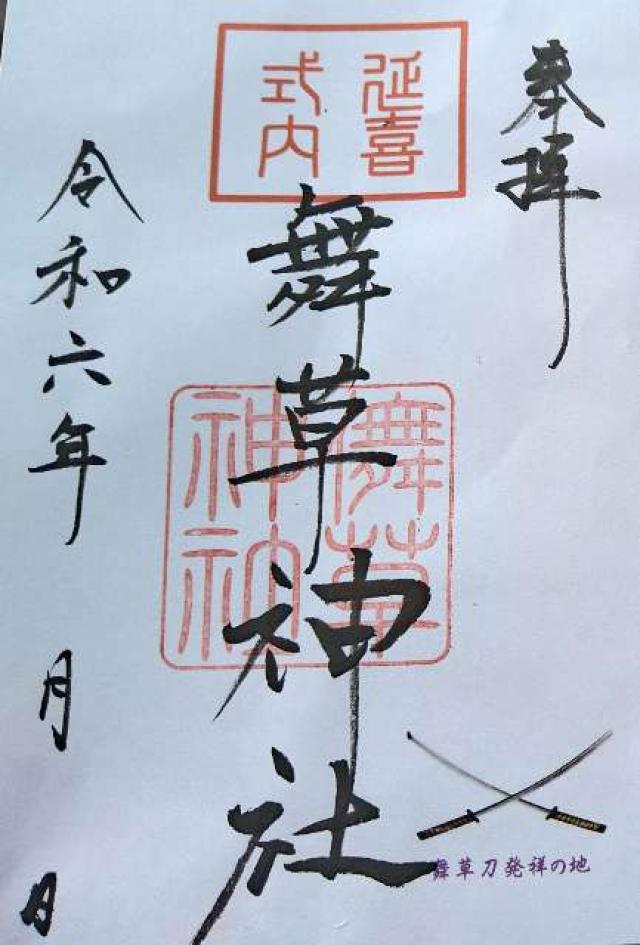 奉拝
延喜
式内
舞草神社
儛草
神社
舞草刀発祥の地
令和六年 月 日